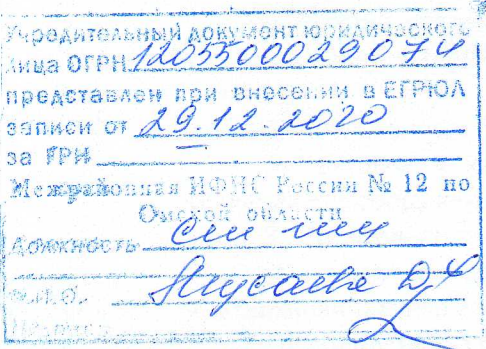 Учредительный документ юридического
лица ОГРН 1205500029074
представлен при внесении в ЕГРЮЛ
записи от 29.12.2020
за ГРН —
Межрайонная ИФНС России № 12 по
Омской области
Должность
Ф.И.О.
Подпись